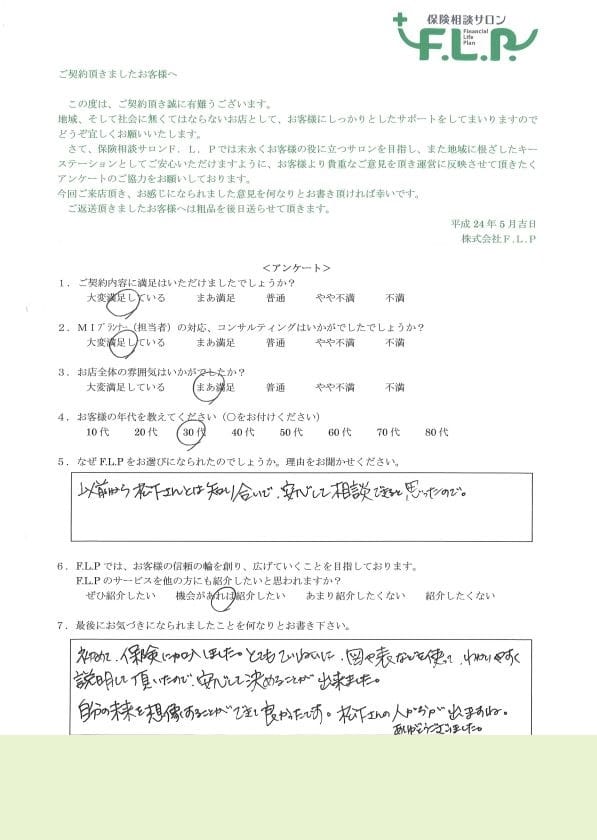 保険相談サロン
Financial
Life
Plan
F.L.P.
ご契約頂きましたお客様へ
この度は、ご契約頂き誠に有難うございます。
地域、そして社会に無くてはならないお店として、お客様にしっかりとしたサポートをしてまいりますので
どうぞ宜しくお願いいたします。
さて、保険相談サロンＦ．Ｌ．Ｐでは末永くお客様の役に立つサロンを目指し、また地域に根ざしたキー
ステーションとしてご安心いただけますように、お客様より貴重なご意見を頂き運営に反映させて頂きたく
アンケートのご協力をお願いしております。
今回ご来店頂き、お感じになられました意見を何なりとお書き頂ければ幸いです。
ご返送頂きましたお客様へは粗品を後日送らせて頂きます。
平成 24 年 5 月吉日
株式会社Ｆ.Ｌ.Ｐ
＜アンケート＞
１．ご契約内容に満足はいただけましたでしょうか？
大変満足している　まあ満足　普通　やや不満　不満
２．ＭＩﾌﾟﾗﾝﾅｰ（担当者）の対応、コンサルティングはいかがでしたでしょうか？
大変満足している　まあ満足　普通　やや不満　不満
３．お店全体の雰囲気はいかがでしたか？
大変満足している　まあ満足　普通　やや不満　不満
４．お客様の年代を教えてください（○をお付けください）
10 代　20 代　30 代　40 代　50 代　60 代　70 代　80 代
５．なぜ F.L.P をお選びになられたのでしょうか。理由をお聞かせください。
以前から松下さんとは知り合いで、安心して相談できると思ったので。
６．F.L.P では、お客様の信頼の輪を創り、広げていくことを目指しております。
F.L.P のサービスを他の方にも紹介したいと思われますか？
ぜひ紹介したい　機会があれば紹介したい　あまり紹介したくない　紹介したくない
７．最後にお気づきになられましたことを何なりとお書き下さい。
初めて、保険に加入しました。とてもていねいに、図や表などを使って、わかりやすく
説明して頂いたので、安心して決めることが出来ました。
自分の未来を想像することができて良かったです。松下さんの人がらが出ますね。
ありがとうございました。